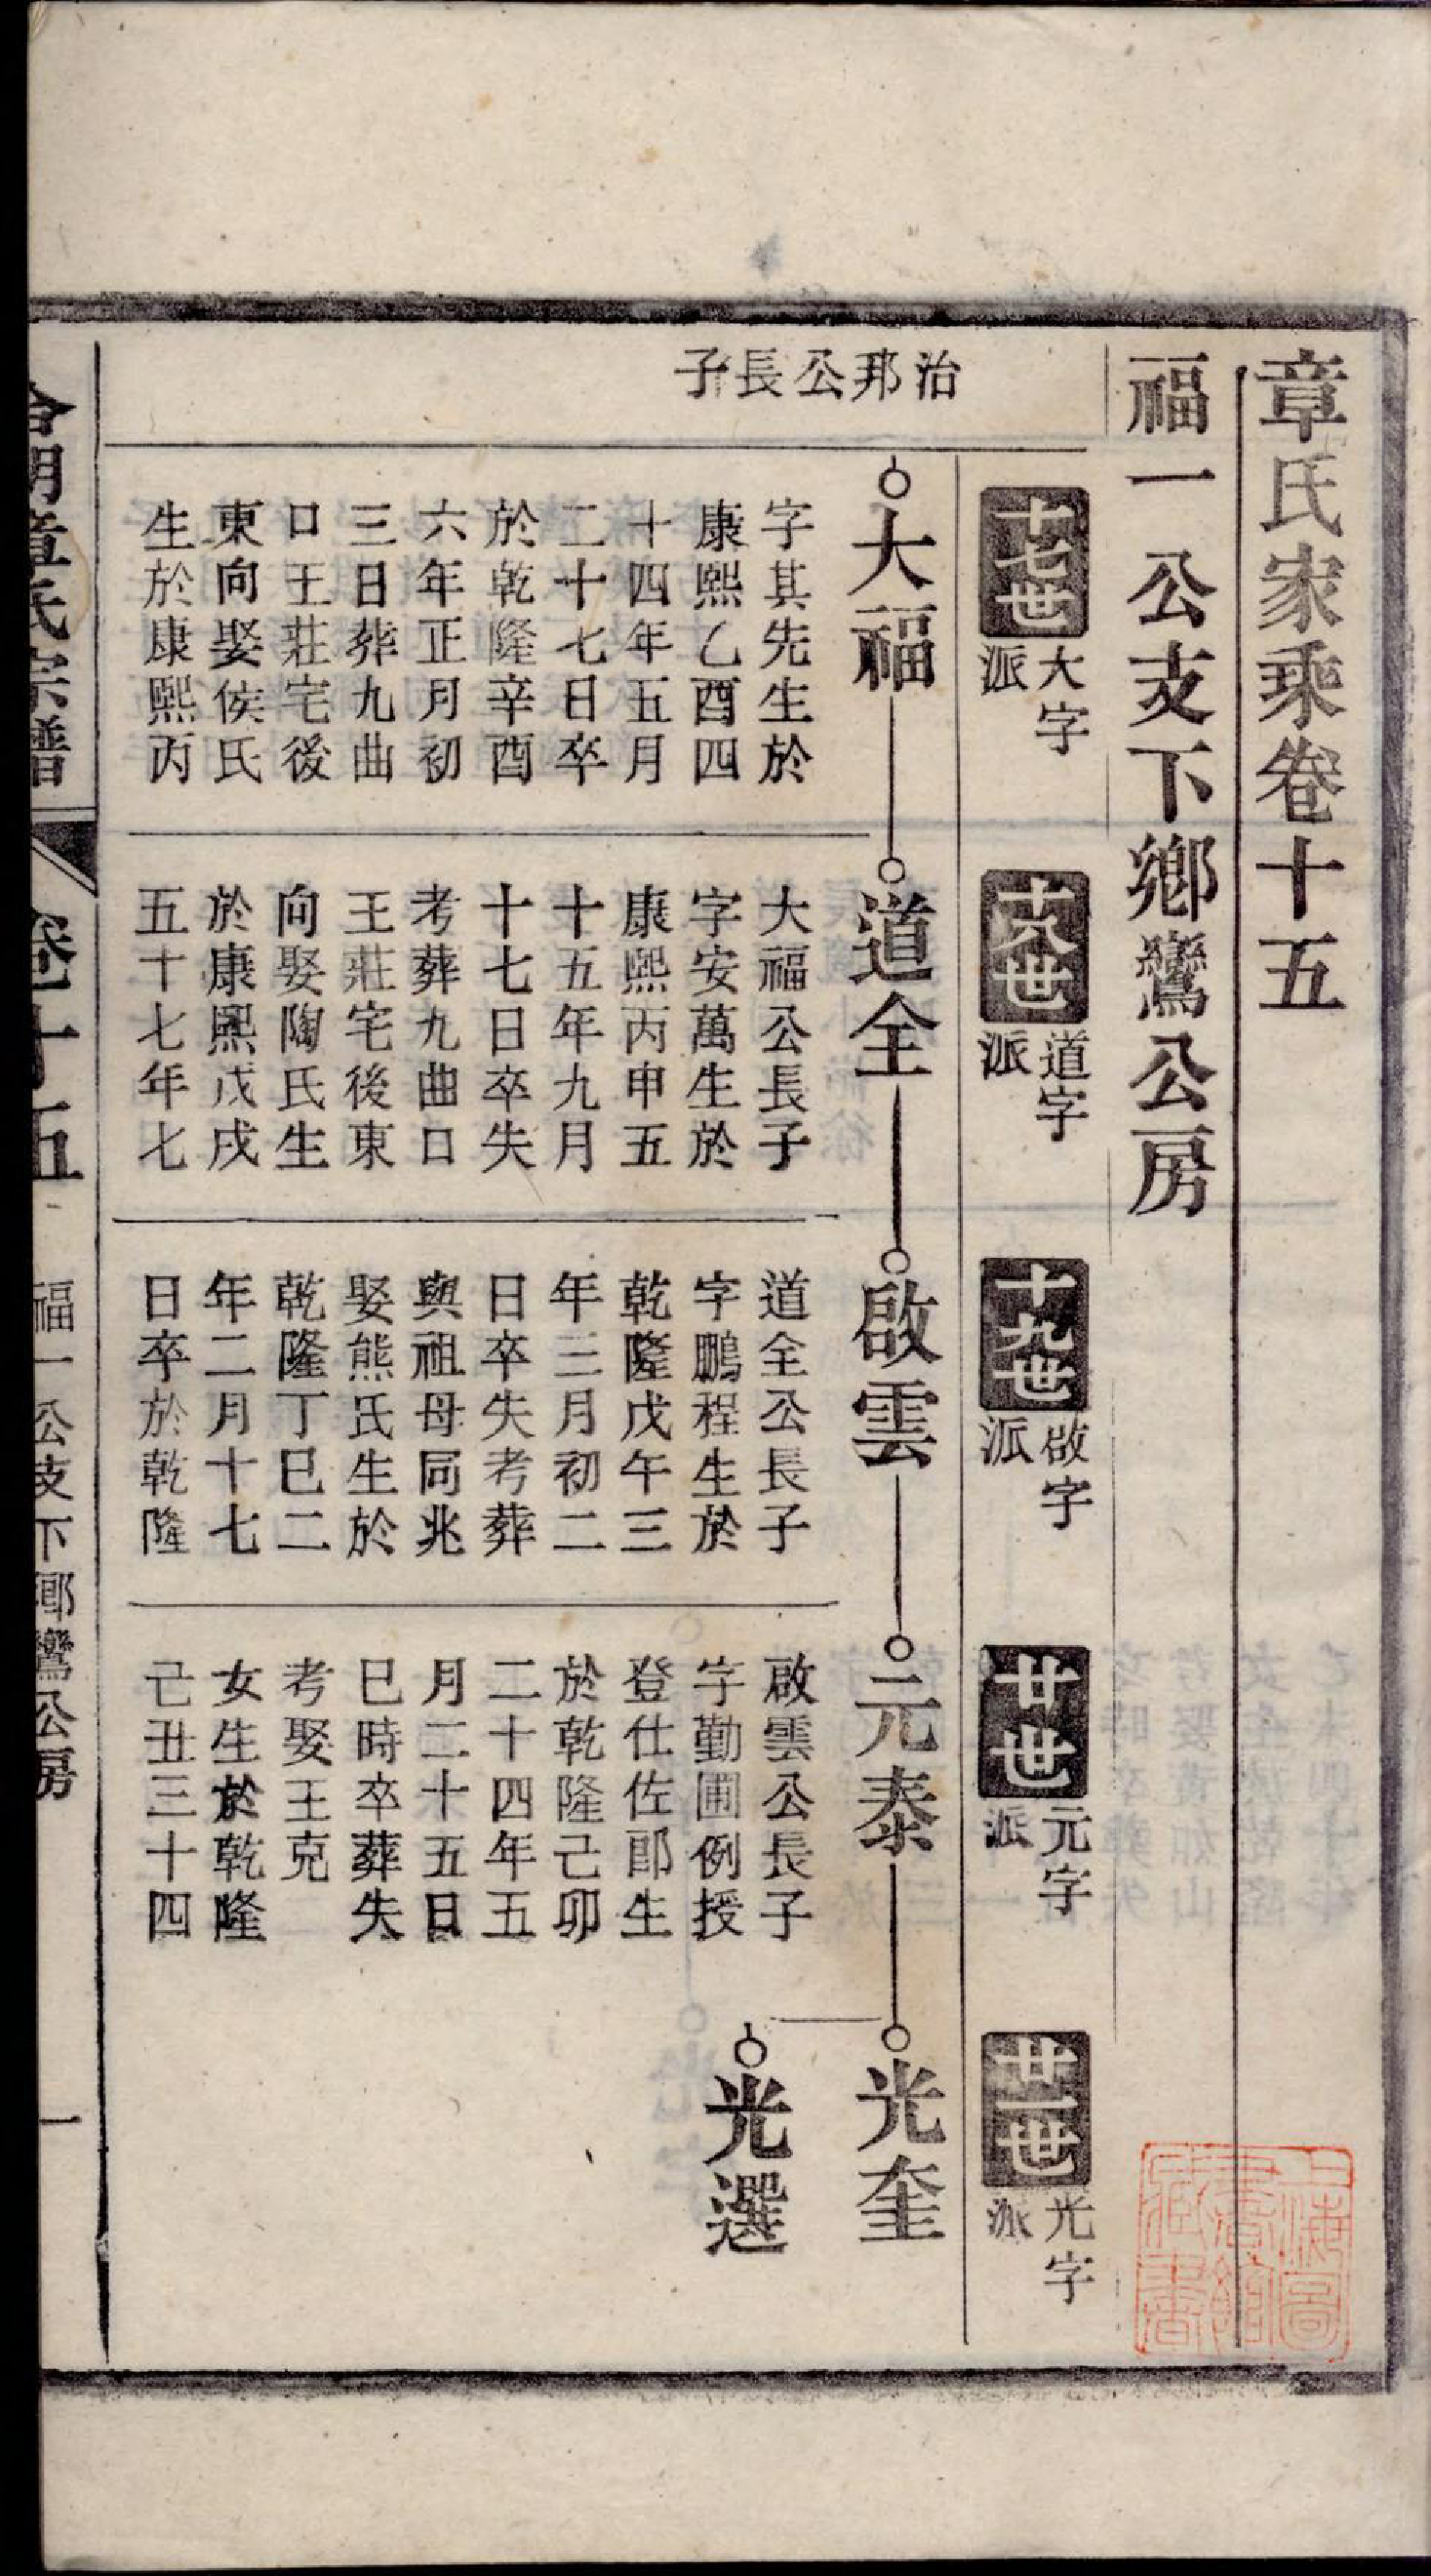 章氏家乘卷十五
福一公支下鄉鸞公房
治邦公長子
十七世
大字
派
大福
字其先生於
康熙乙酉四
十四年五月
二十七日卒
於乾隆辛酉
六年正月初
三日葬九曲
口王莊宅後
東向娶侯氏
生於康熙丙
十八世
道字
派
道全
大福公長子
字安萬生於
康熙丙申五
十五年九月
十七日卒失
考葬九曲口
王莊宅後東
向娶陶氏生
於康熙戊戌
五十七年七
十九世
啟字
派
啟雲
道全公長子
字鵬程生於
乾隆戊午三
年三月初二
日卒失考葬
與祖母同兆
娶熊氏生於
乾隆丁巳二
年二月十七
日卒於乾隆
廿世
元字
派
元泰
啟雲公長子
字勤圃例授
登仕佐郎生
於乾隆己卯
二十四年五
月二十五日
巳時卒葬失
考娶王克
女生於乾隆
己丑三十四
廿一世
光字
派
光奎
光選
章氏宗譜
卷十五
福一公支下鄉鸞公房
一
上海圖書館藏書